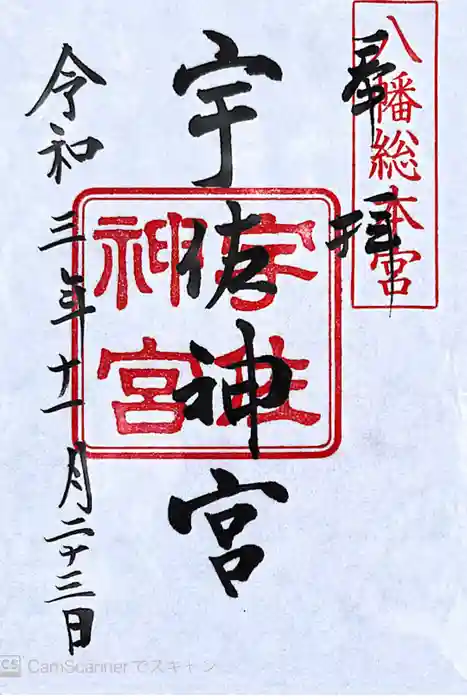 八幡総本宮
奉拝
宇佐神宮
宇佐
神宮
令和三年十一月二十三日
CS CamScannerでスキャン